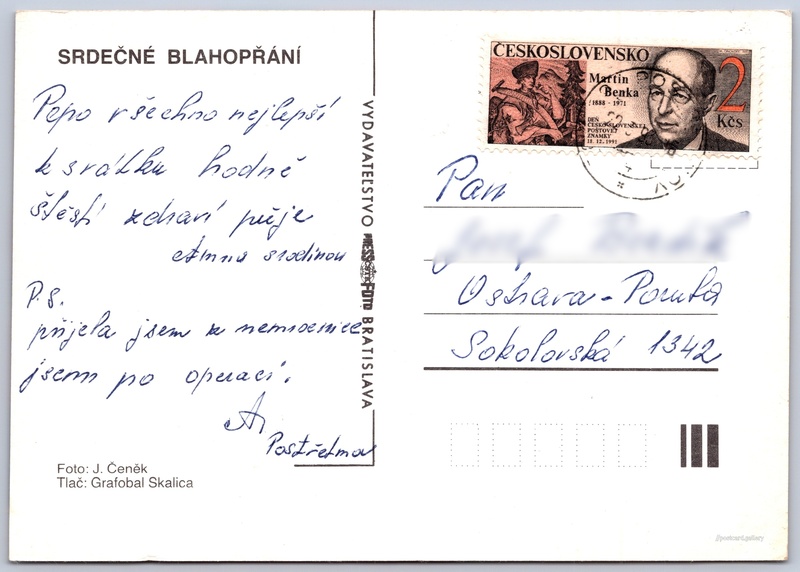 SRDEČNÉ BLAHOPŘÁNÍ
Pepo všechno nejlepší
k svátku hodně
štěstí zdraví přeje
Anna s rodinou
P.S.
přijela jsem z nemocnice
jsem po operaci.
Foto: J. Čeněk
Tlač: Grafobal Skalica
VYDAVATEĽSTVO PRESSFOTO BRATISLAVA
ČESKOSLOVENSKO
Martin
Benka
1888 - 1971
DEŇ
ČESKOSLOVENSKEJ
POŠTOVEJ
ZNÁMKY
18.12.1991
2
Kčs
Pan
Ostrava - Poruba
Sokolovská 1342
//postcard.gallery